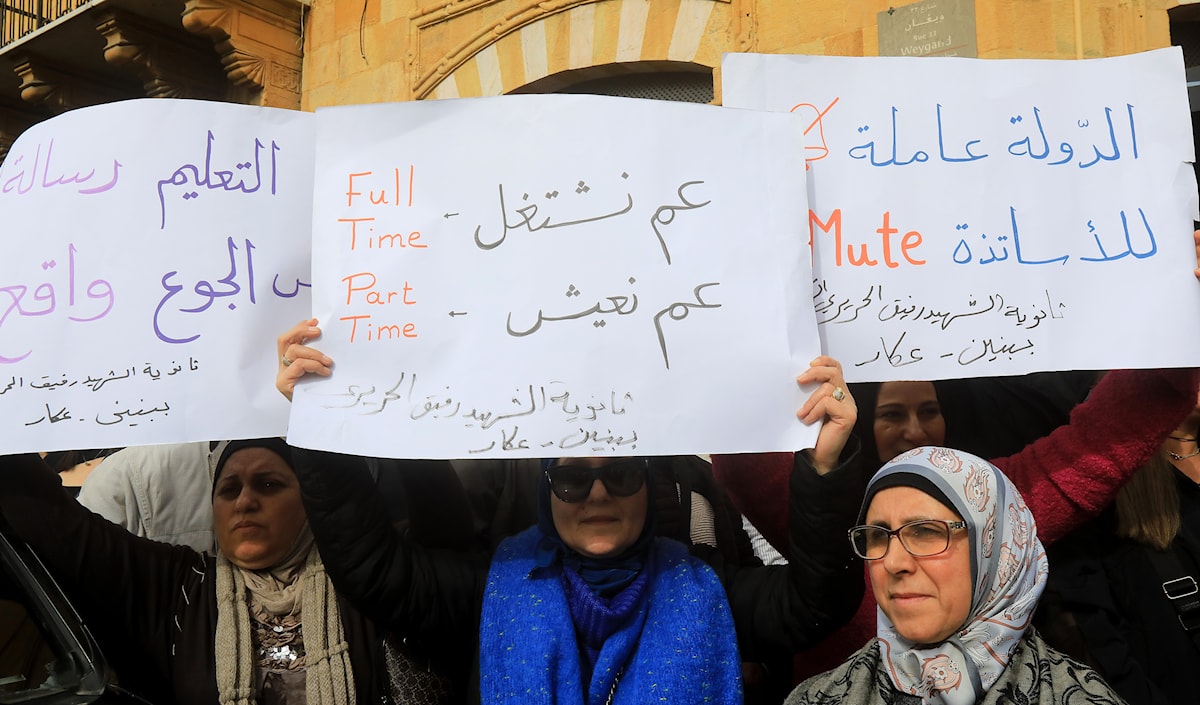 ويغان
Rue
Weygand
الدّولة عاملة
للأساتذة Mute
ثانوية الشهيد رفيق الحريري
ببنين - عكار
عم نشتغل ← Full Time
عم نعيش ← Part Time
ثانوية الشهيد رفيق الحريري
ببنين - عكار
التعليم رسالة
الجوع واقع
ثانوية الشهيد رفيق
ببنين - عكار